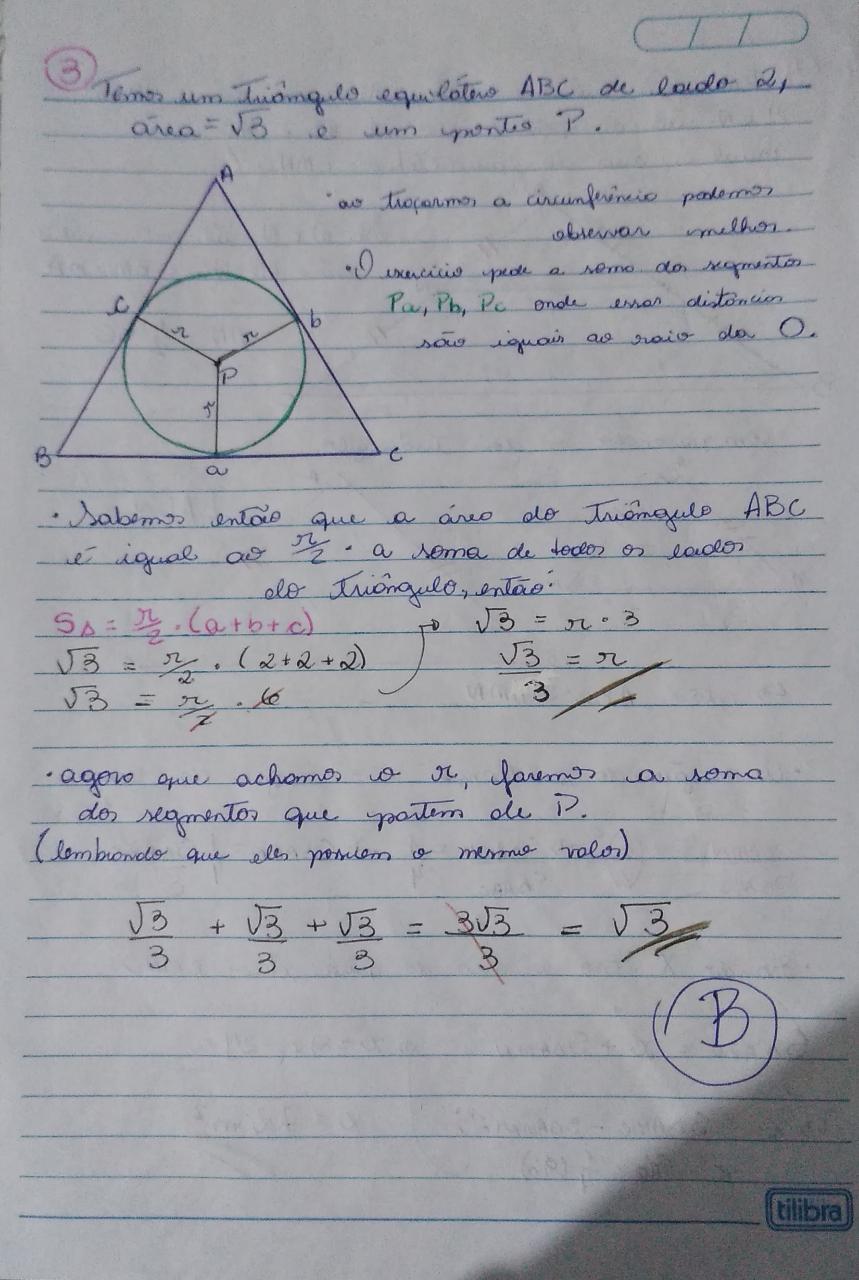 3
Temos um triângulo equilátero ABC de lado 2,
área = √3 e um ponto P.
A
• ao traçarmos a circunferência podemos
observar melhor.
• O exercício pede a soma dos segmentos
Pa, Pb, Pc onde essas distâncias
são iguais ao raio da O.
c
b
r
r
P
r
B
a
C
• Sabemos então que a área do triângulo ABC
é igual ao r/2 • a soma de todos os lados
do triângulo, então:
S∆ = r/2 . (a+b+c)
√3 = r/2 . (2+2+2)
√3 = r/2 . 6
√3 = r • 3
√3/3 = r
• agora que achamos o r, faremos a soma
dos segmentos que partem de P.
(lembrando que eles possuem o mesmo valor)
√3/3 + √3/3 + √3/3 = 3√3/3 = √3
B
tilibra